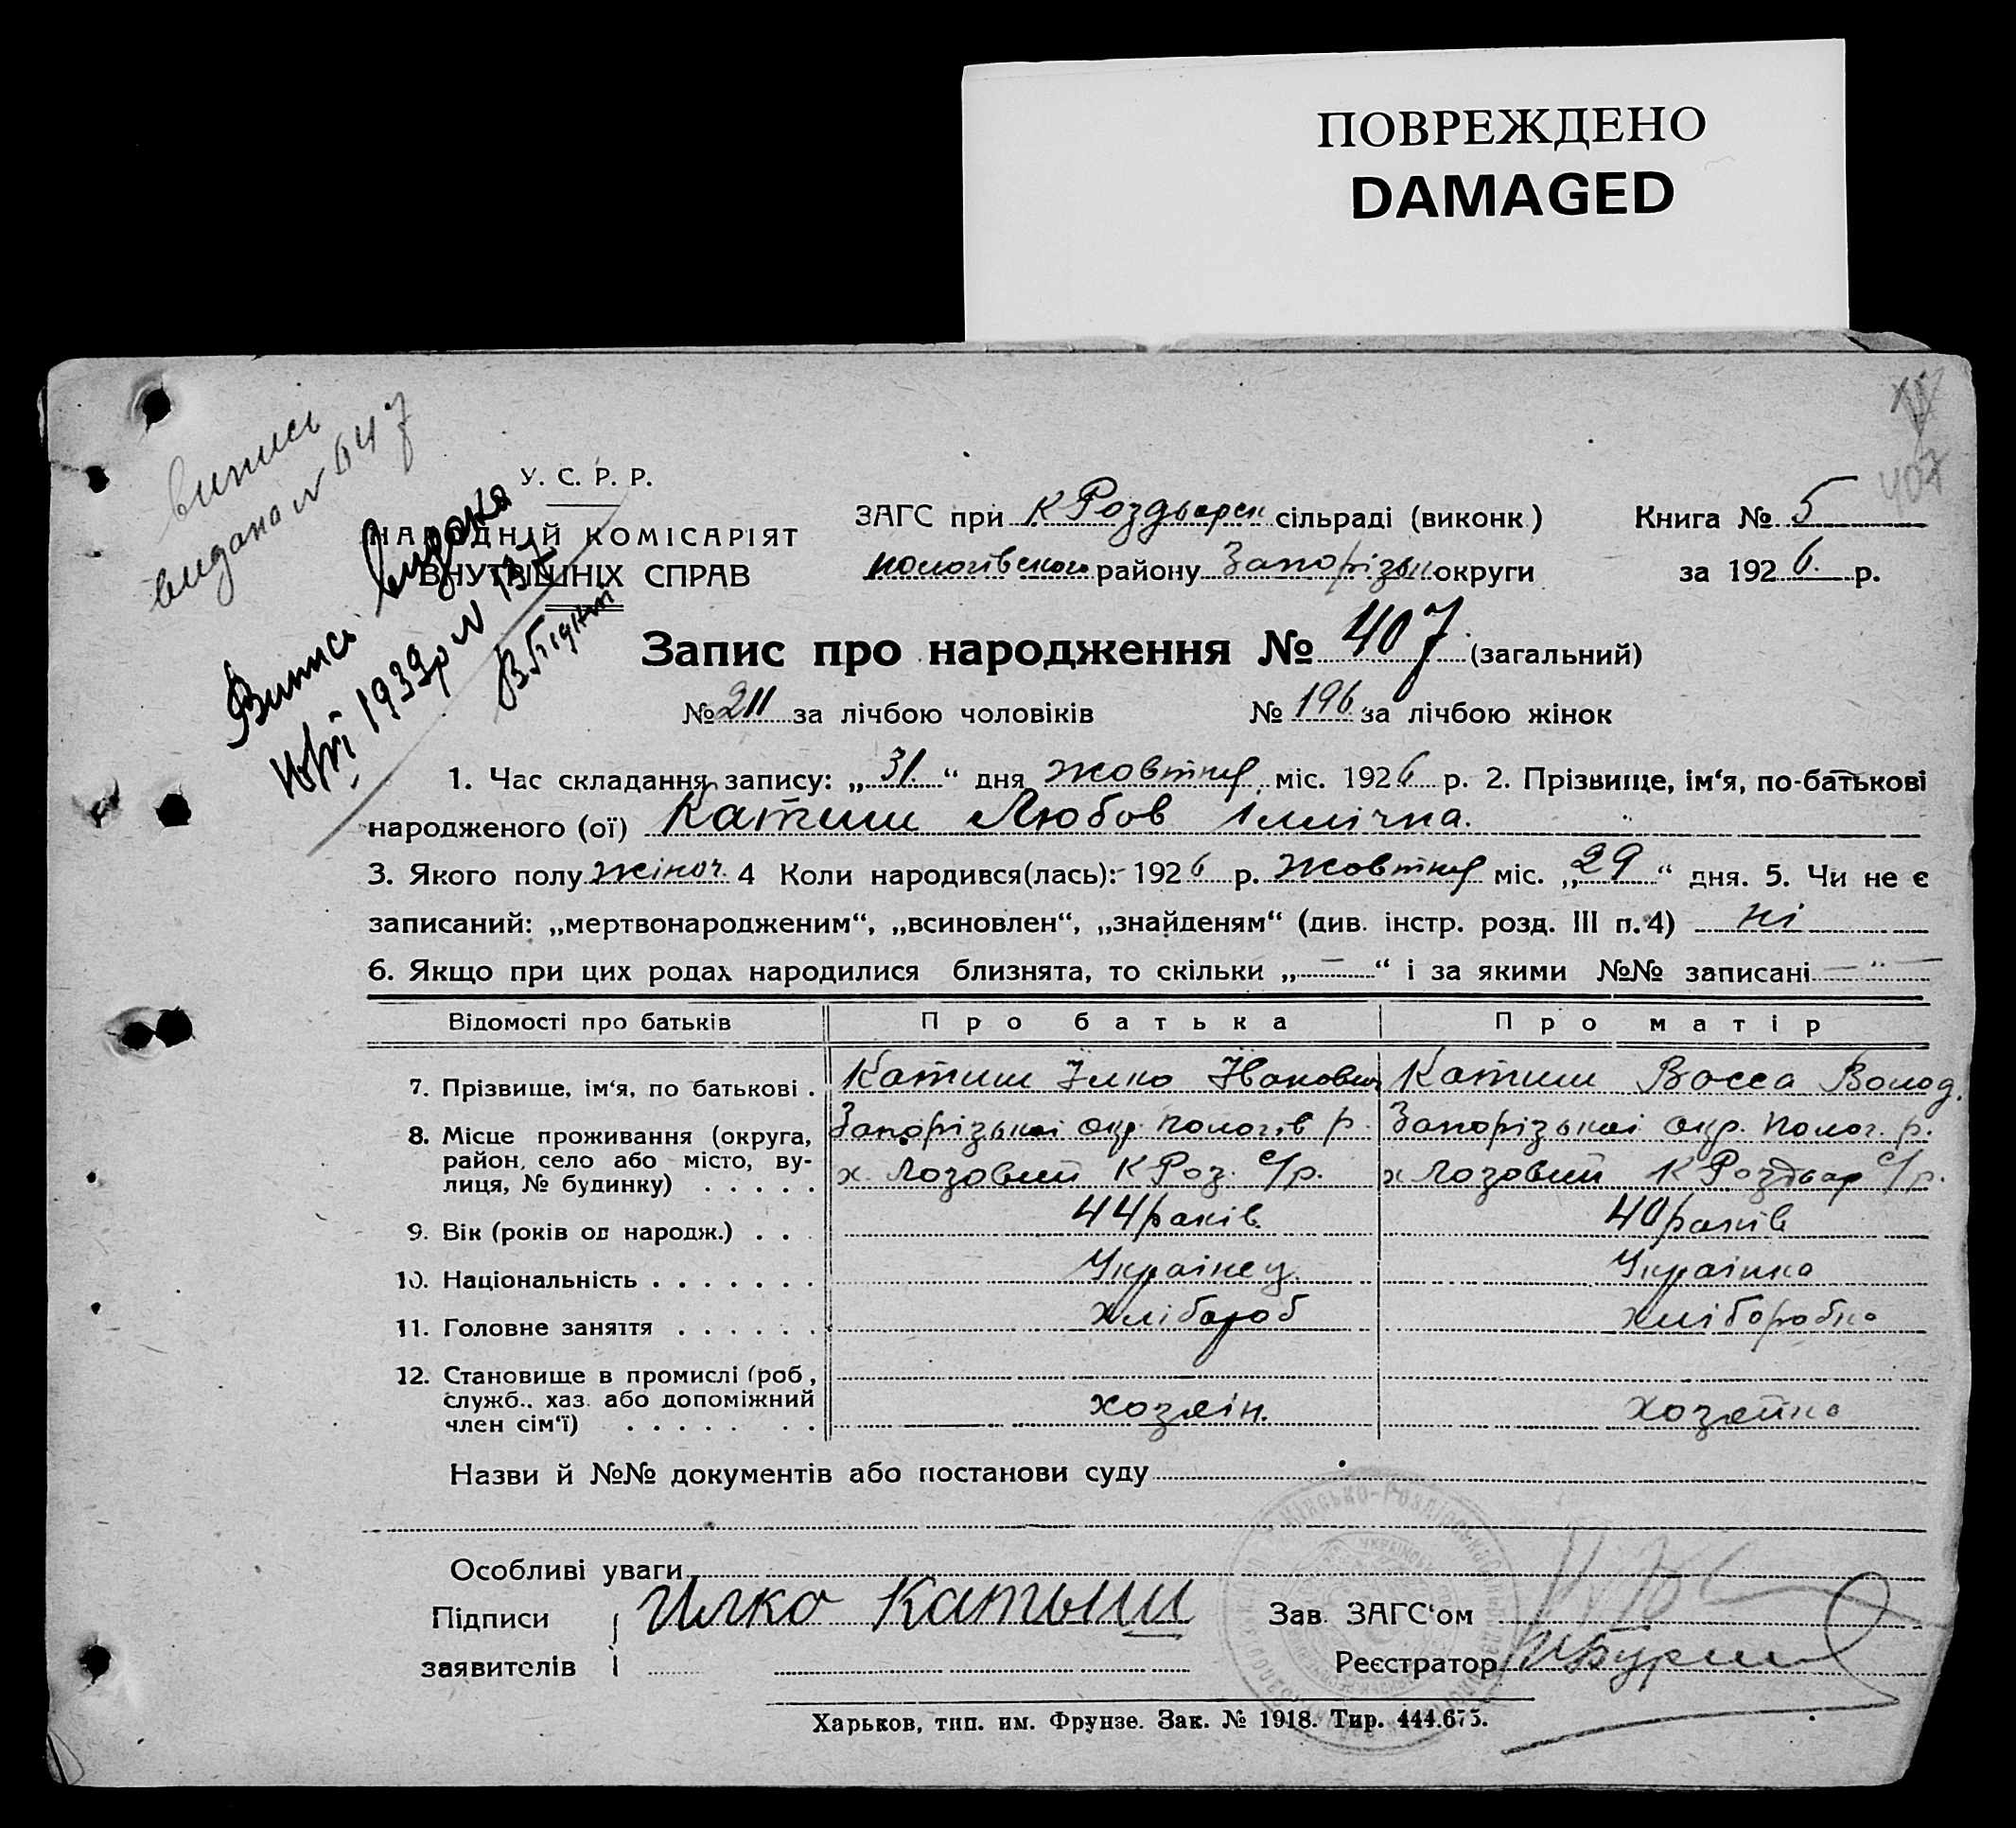 ПОВРЕЖДЕНО
DAMAGED
407
випись
видана № 647
Випись видана
1939р №
У. С. Р. Р.
НАРОДНІЙ КОМІСАРІЯТ
ВНУТРІШНІХ СПРАВ
ЗАГС при К Роздорськ сільраді (виконк) Книга № 5
Пологівського району Запорізьк округи за 1926 р.
Запис про народження № 407 (загальний)
№ 211 за лічбою чоловіків № 196 за лічбою жінок
1. Час складання запису: „31“ дня жовтня міс. 1926 р. 2. Прізвище, ім‘я, по-батькові
народженого (ої) Катиш Любов Іллічна.
3. Якого полу жіноч. 4 Коли народився(лась): 1926 р. жовтня міс. „29“ дня. 5. Чи не є
записаний: „мертвонародженим“, „всиновлен“, „знайденям“ (див. інстр. розд. III п. 4) ні
6. Якщо при цих родах народилися близнята, то скільки „—“ і за якими №№ записані — " —
Відомості про батьків Про батька Про матір
7. Прізвище, ім‘я, по батькові . Катиш Ілко Іванович Катиш Васса Волод.
8. Місце проживання (округа, Запорізької окр. Пологів р. Запорізької окр. Полог. р.
район, село або місто, ву-
лиця, № будинку) . . . . . х. Лозовий К Роз. с/р. х Лозовий К Роздор с/р.
9. Вік (років од народж.) . . . 44 років 40 років
10. Національність . . . . . . . Українец Українка
11. Головне заняття . . . . . . хлібороб хліборобка
12. Становище в промислі (роб,
служб., хаз. або допоміжний
член сім‘ї) . . . . . . . хозяін. хозяйка
Назви й №№ документів або постанови суду
Особливі уваги
Підписи Илко Катыш Зав. ЗАГС‘ом
заявителів Реєстратор
Харьков, тип. им. Фрунзе. Зак. № 1918. Тир. 444.675.